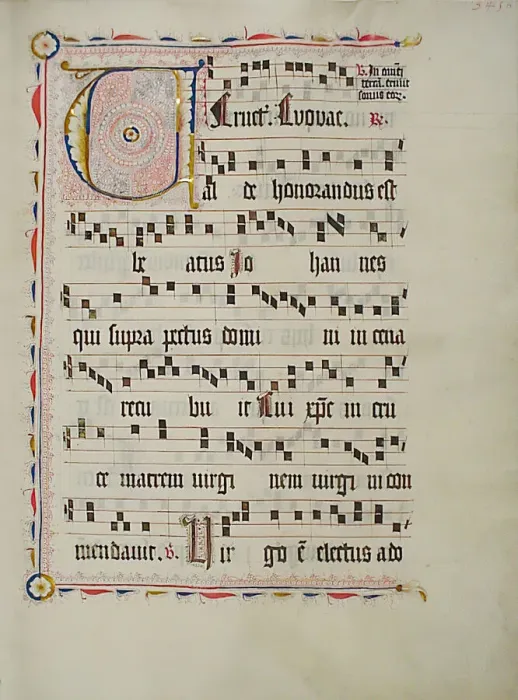 ℣. In omnē
terrā. exivit
sonus eoꝝ.
Cruct'. Evovae. ℟.
Val de honorandus est
be atus Jo han nes
qui supra pectus domi ni in cena
recu bu it Cui xp̄c in cru
ce matrem virgi nem virgi ni con
mendavit. ℣. Vir go ē electus a do